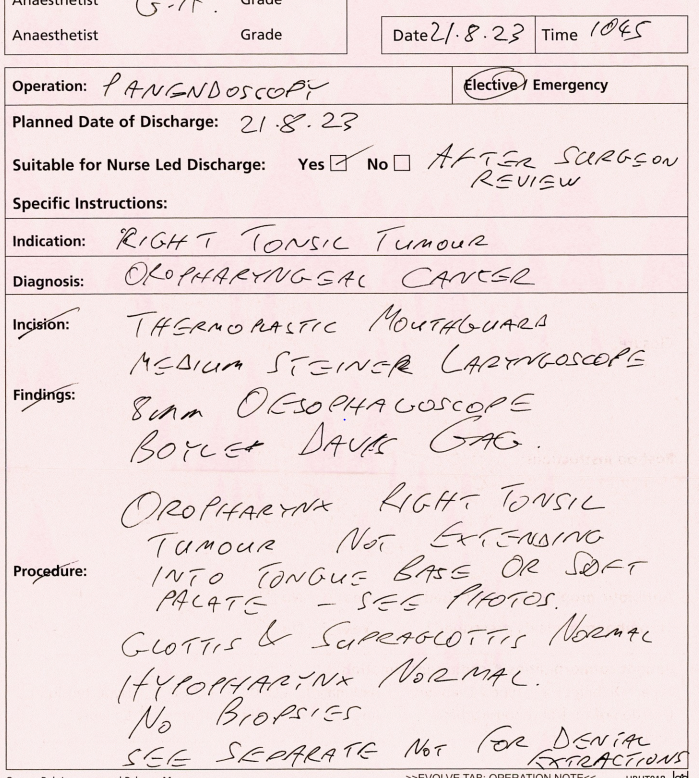 Anaesthetist G.A. Grade
Anaesthetist Grade
Date 21.8.23 Time 1045
Operation: PANENDOSCOPY Elective / Emergency
Planned Date of Discharge: 21.8.23
Suitable for Nurse Led Discharge: Yes ☑ No ☐ AFTER SURGEON
REVIEW
Specific Instructions:
Indication: RIGHT TONSIL TUMOUR
Diagnosis: OROPHARYNGEAL CANCER
Incision: THERMOPLASTIC MOUTHGUARD
MEDIUM STEINER LARYNGOSCOPE
Findings: 8mm OESOPHAGOSCOPE
BOYLE DAVIS GAG.
OROPHARYNX RIGHT TONSIL
TUMOUR NOT EXTENDING
Procedure: INTO TONGUE BASE OR SOFT
PALATE - SEE PHOTOS.
GLOTTIS & SUPRAGLOTTIS NORMAL
HYPOPHARYNX NORMAL.
NO BIOPSIES
SEE SEPARATE NOT FOR DENTAL
EXTRACTIONS
>>EVOLVE TAB: OPERATION NOTE<<